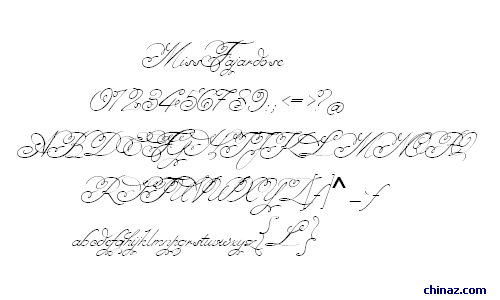 MissFajardose
0123456789:;<=>?@
ABCDEFGHIJKLMNOPQ
RSTUVWXYZ[f]^_`f
abcdefghijklmnopqrstuvwxyz{L}
chinaz.com